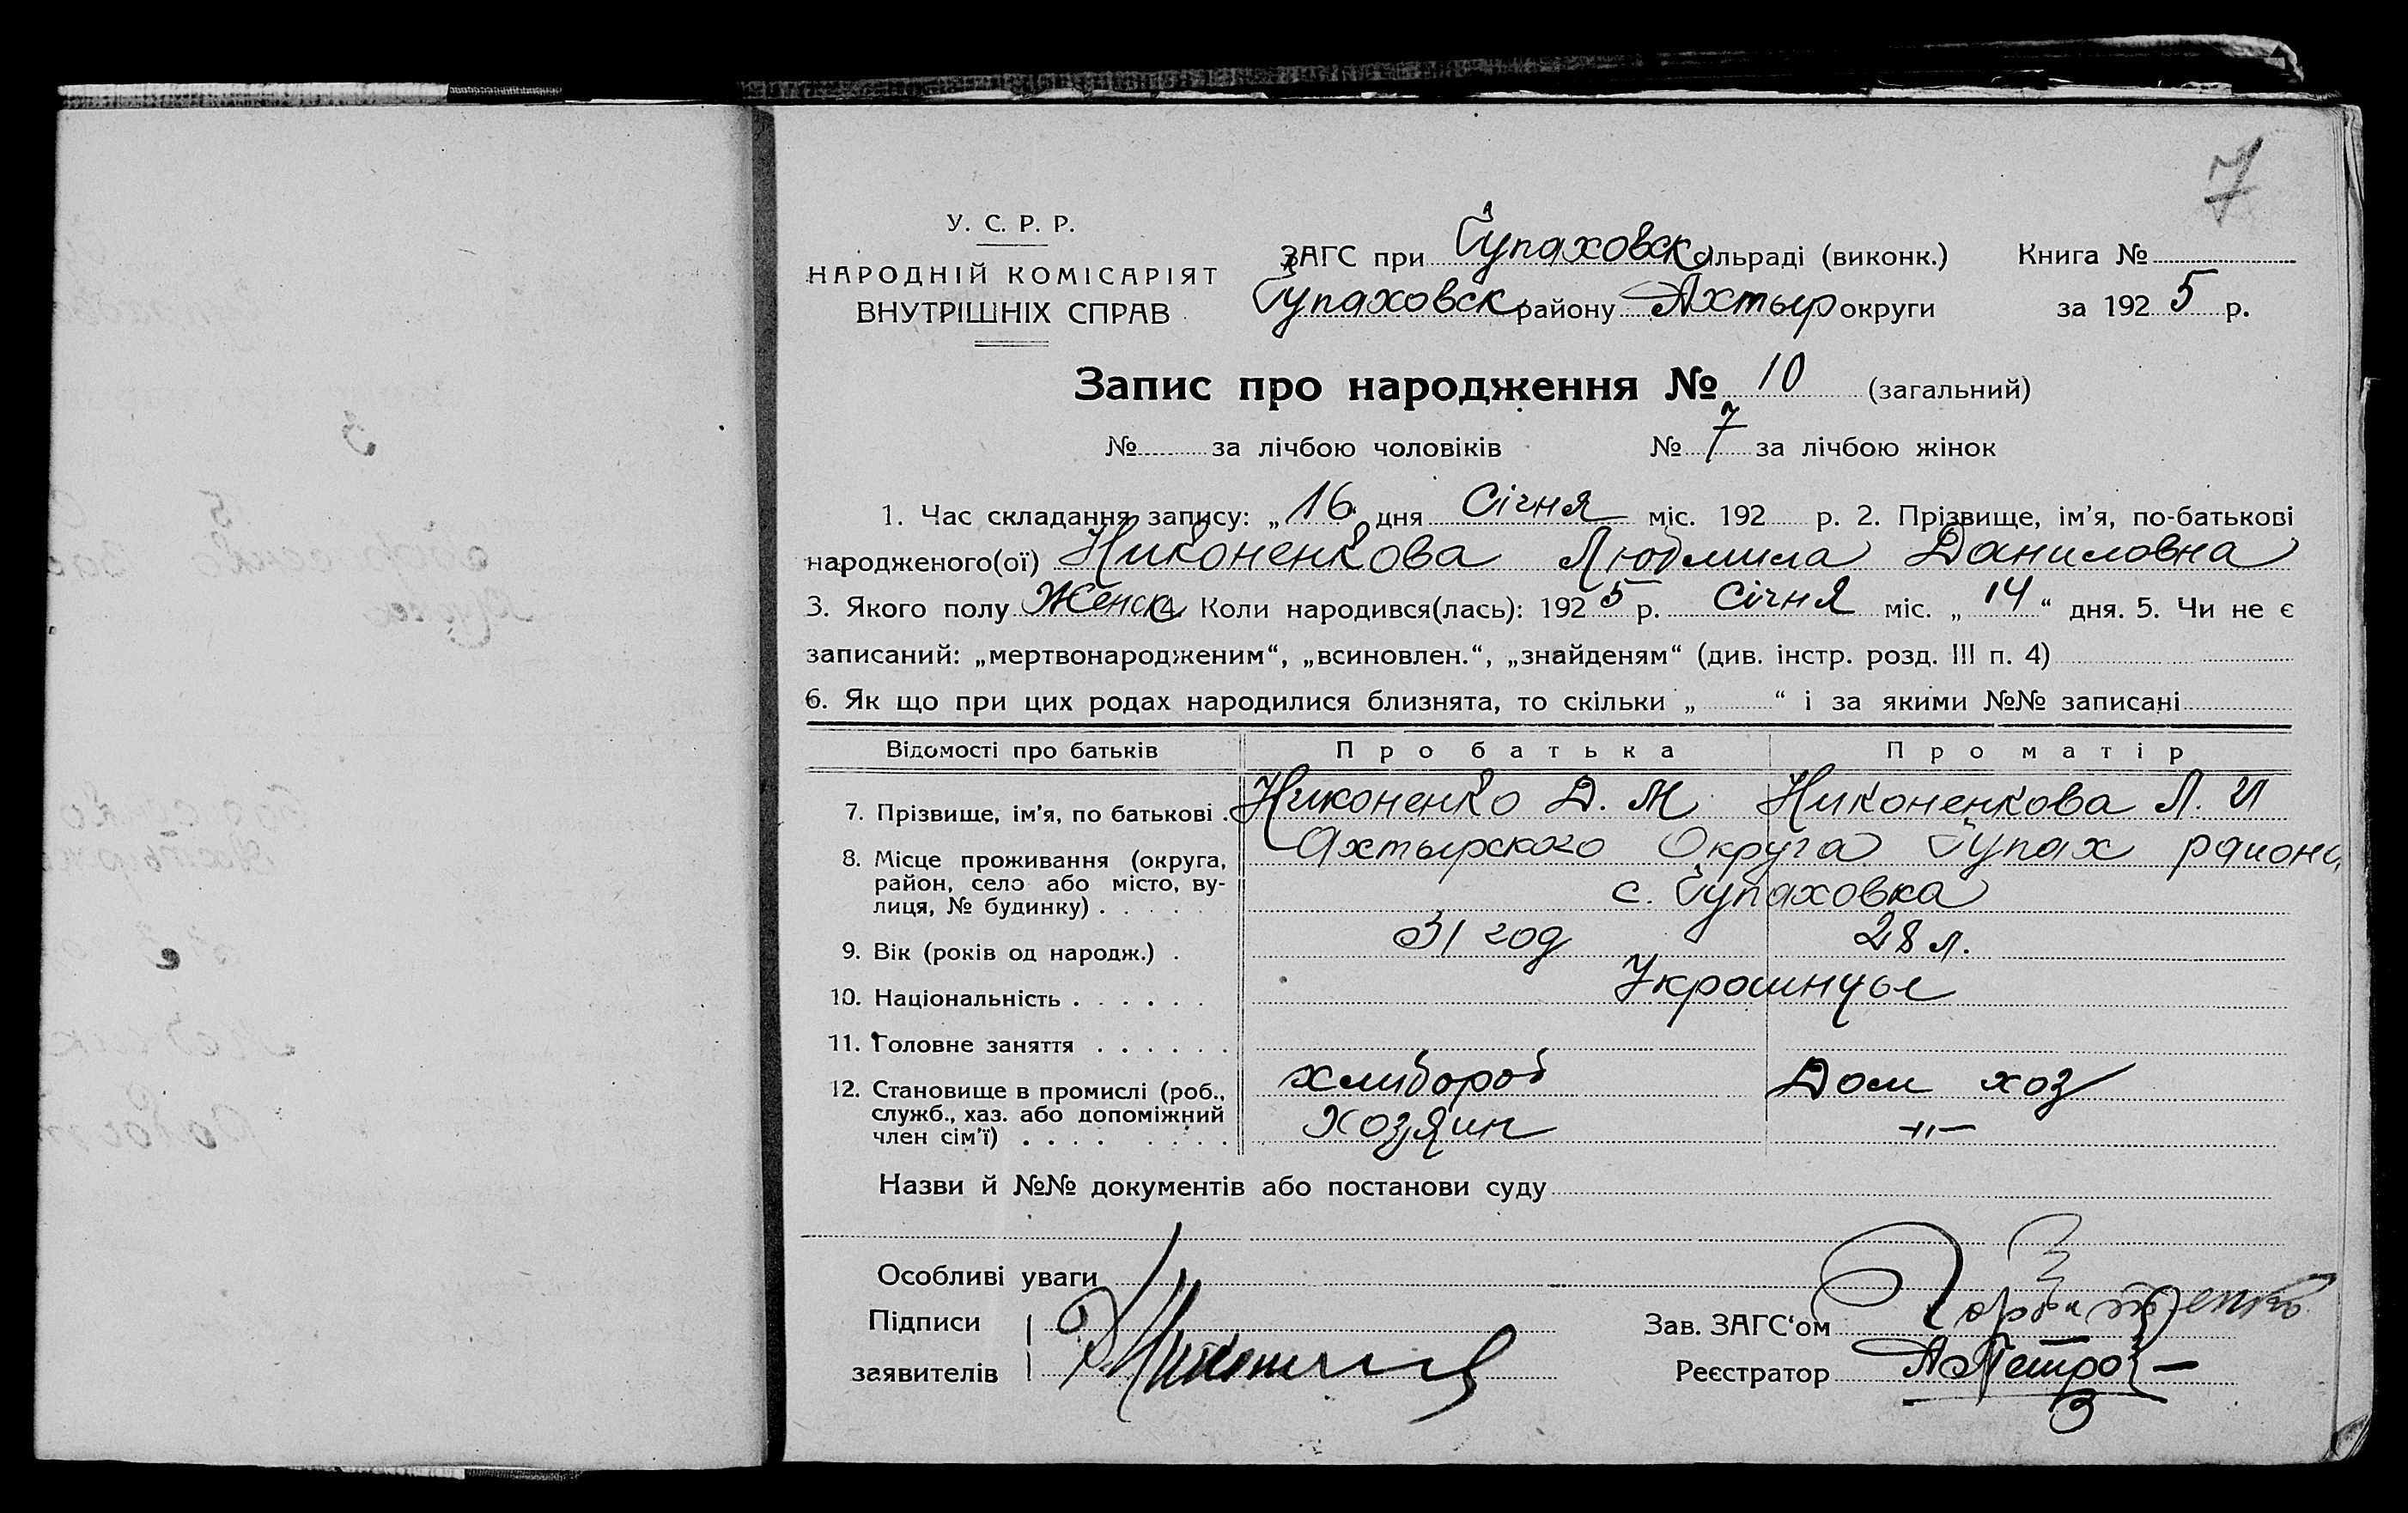 7
У. С. Р. Р.
НАРОДНІЙ КОМІСАРІЯТ
ВНУТРІШНІХ СПРАВ
ЗАГС при Чупаховск сільраді (виконк.) Книга №
Чупаховск району Ахтыр округи за 1925 р.
Запис про народження № 10 (загальний)
№ за лічбою чоловіків № 7 за лічбою жінок
1. Час складання запису: „16 дня Січня міс. 192 р. 2. Прізвище, ім’я, по-батькові
народженого(ої) Никоненкова Людмила Даниловна
3. Якого полу Женск Коли народився(лась): 1925 р. Січня міс. „14“ дня. 5. Чи не є
записаний: „мертвонародженим“, „всиновлен.“, „знайденям“ (див. інстр. розд. III п. 4)
6. Як що при цих родах народилися близнята, то скільки „ “ і за якими №№ записані
Відомості про батьків Про батька Про матір
7. Прізвище, ім’я, по батькові . Никоненко Д. М. Никоненкова Л. И
8. Місце проживання (округа, Ахтырского Округа Чупах района
район, село або місто, ву-
лиця, № будинку) . с. Чупаховка
9. Вік (років од народж.) . 31 год 28 л.
10. Національність . Украинцы
11. Головне заняття .
12. Становище в промислі (роб., хлибороб Дом хоз
служб., хаз. або допоміжний
член сім’ї) . Хозяин -"-
Назви й №№ документів або постанови суду
Особливі уваги
Підписи
заявителів
Зав. ЗАГС‘ом
Реєстратор